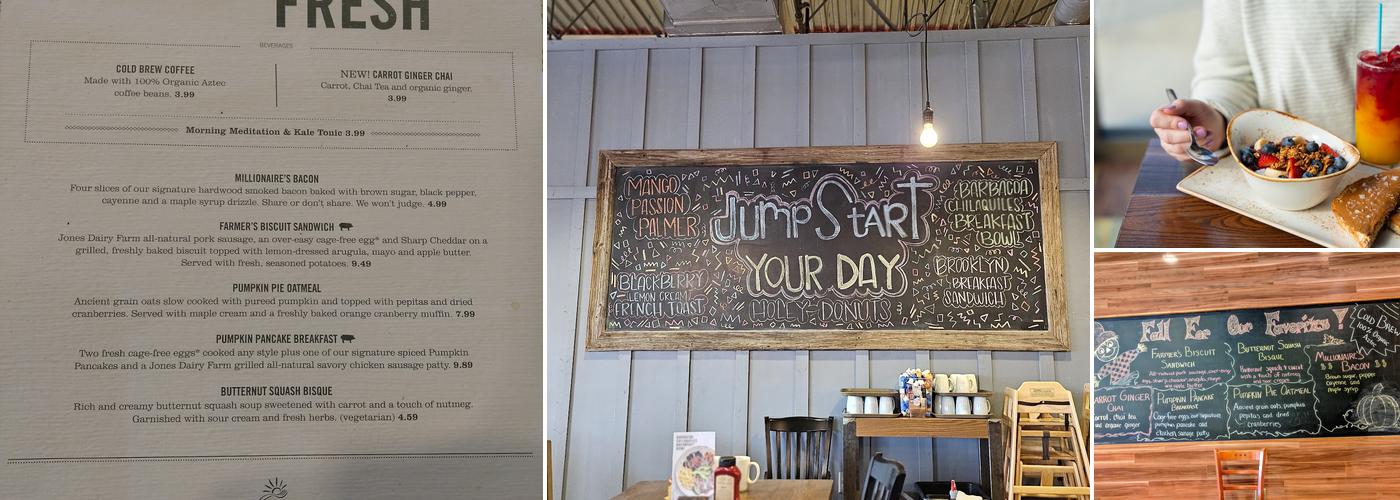 FRESH
BEVERAGES
COLD BREW COFFEE
Made with 100% Organic Aztec
coffee beans. 3.99
NEW! CARROT GINGER CHAI
Carrot, Chai Tea and organic ginger.
3.99
Morning Meditation & Kale Tonic 3.99
MILLIONAIRE'S BACON
Four slices of our signature hardwood smoked bacon baked with brown sugar, black pepper,
cayenne and a maple syrup drizzle. Share or don't share. We won't judge. 4.99
FARMER'S BISCUIT SANDWICH
Jones Dairy Farm all-natural pork sausage, an over-easy cage-free egg* and Sharp Cheddar on a
grilled, freshly baked biscuit topped with lemon-dressed arugula, mayo and apple butter.
Served with fresh, seasoned potatoes. 9.49
PUMPKIN PIE OATMEAL
Ancient grain oats slow cooked with pureed pumpkin and topped with pepitas and dried
cranberries. Served with maple cream and a freshly baked orange cranberry muffin. 7.99
PUMPKIN PANCAKE BREAKFAST
Two fresh cage-free eggs* cooked any style plus one of our signature spiced Pumpkin
Pancakes and a Jones Dairy Farm grilled all-natural savory chicken sausage patty. 9.89
BUTTERNUT SQUASH BISQUE
Rich and creamy butternut squash soup sweetened with carrot and a touch of nutmeg.
Garnished with sour cream and fresh herbs. (vegetarian) 4.59
MANGO
PASSION
PALMER
JUMPSTART
YOUR DAY
BARBACOA
CHILAQUILES
BREAKFAST
BOWL
BLACKBERRY
LEMON CREAM
FRENCH TOAST
HOLEY-DONUTS
BROOKLYN
BREAKFAST
SANDWICH
Fall For Our Favorites!
COLD BREW
100% Organic
FARMER'S BISCUIT
SANDWICH
BUTTERNUT SQUASH
BISQUE
Butternut squash & carrot
with a touch of nutmeg
and sour cream
MILLIONAIRE
$$ BACON $$
Brown sugar, pepper
cayenne and
maple syrup
CARROT GINGER
CHAI
carrot, chai tea
and organic ginger
PUMPKIN PANCAKE
BREAKFAST
Cage-free eggs, our signature
pumpkin pancake and
chicken sausage patty
PUMPKIN PIE OATMEAL
Ancient grain oats, pumpkin
pepitas, and dried
cranberries